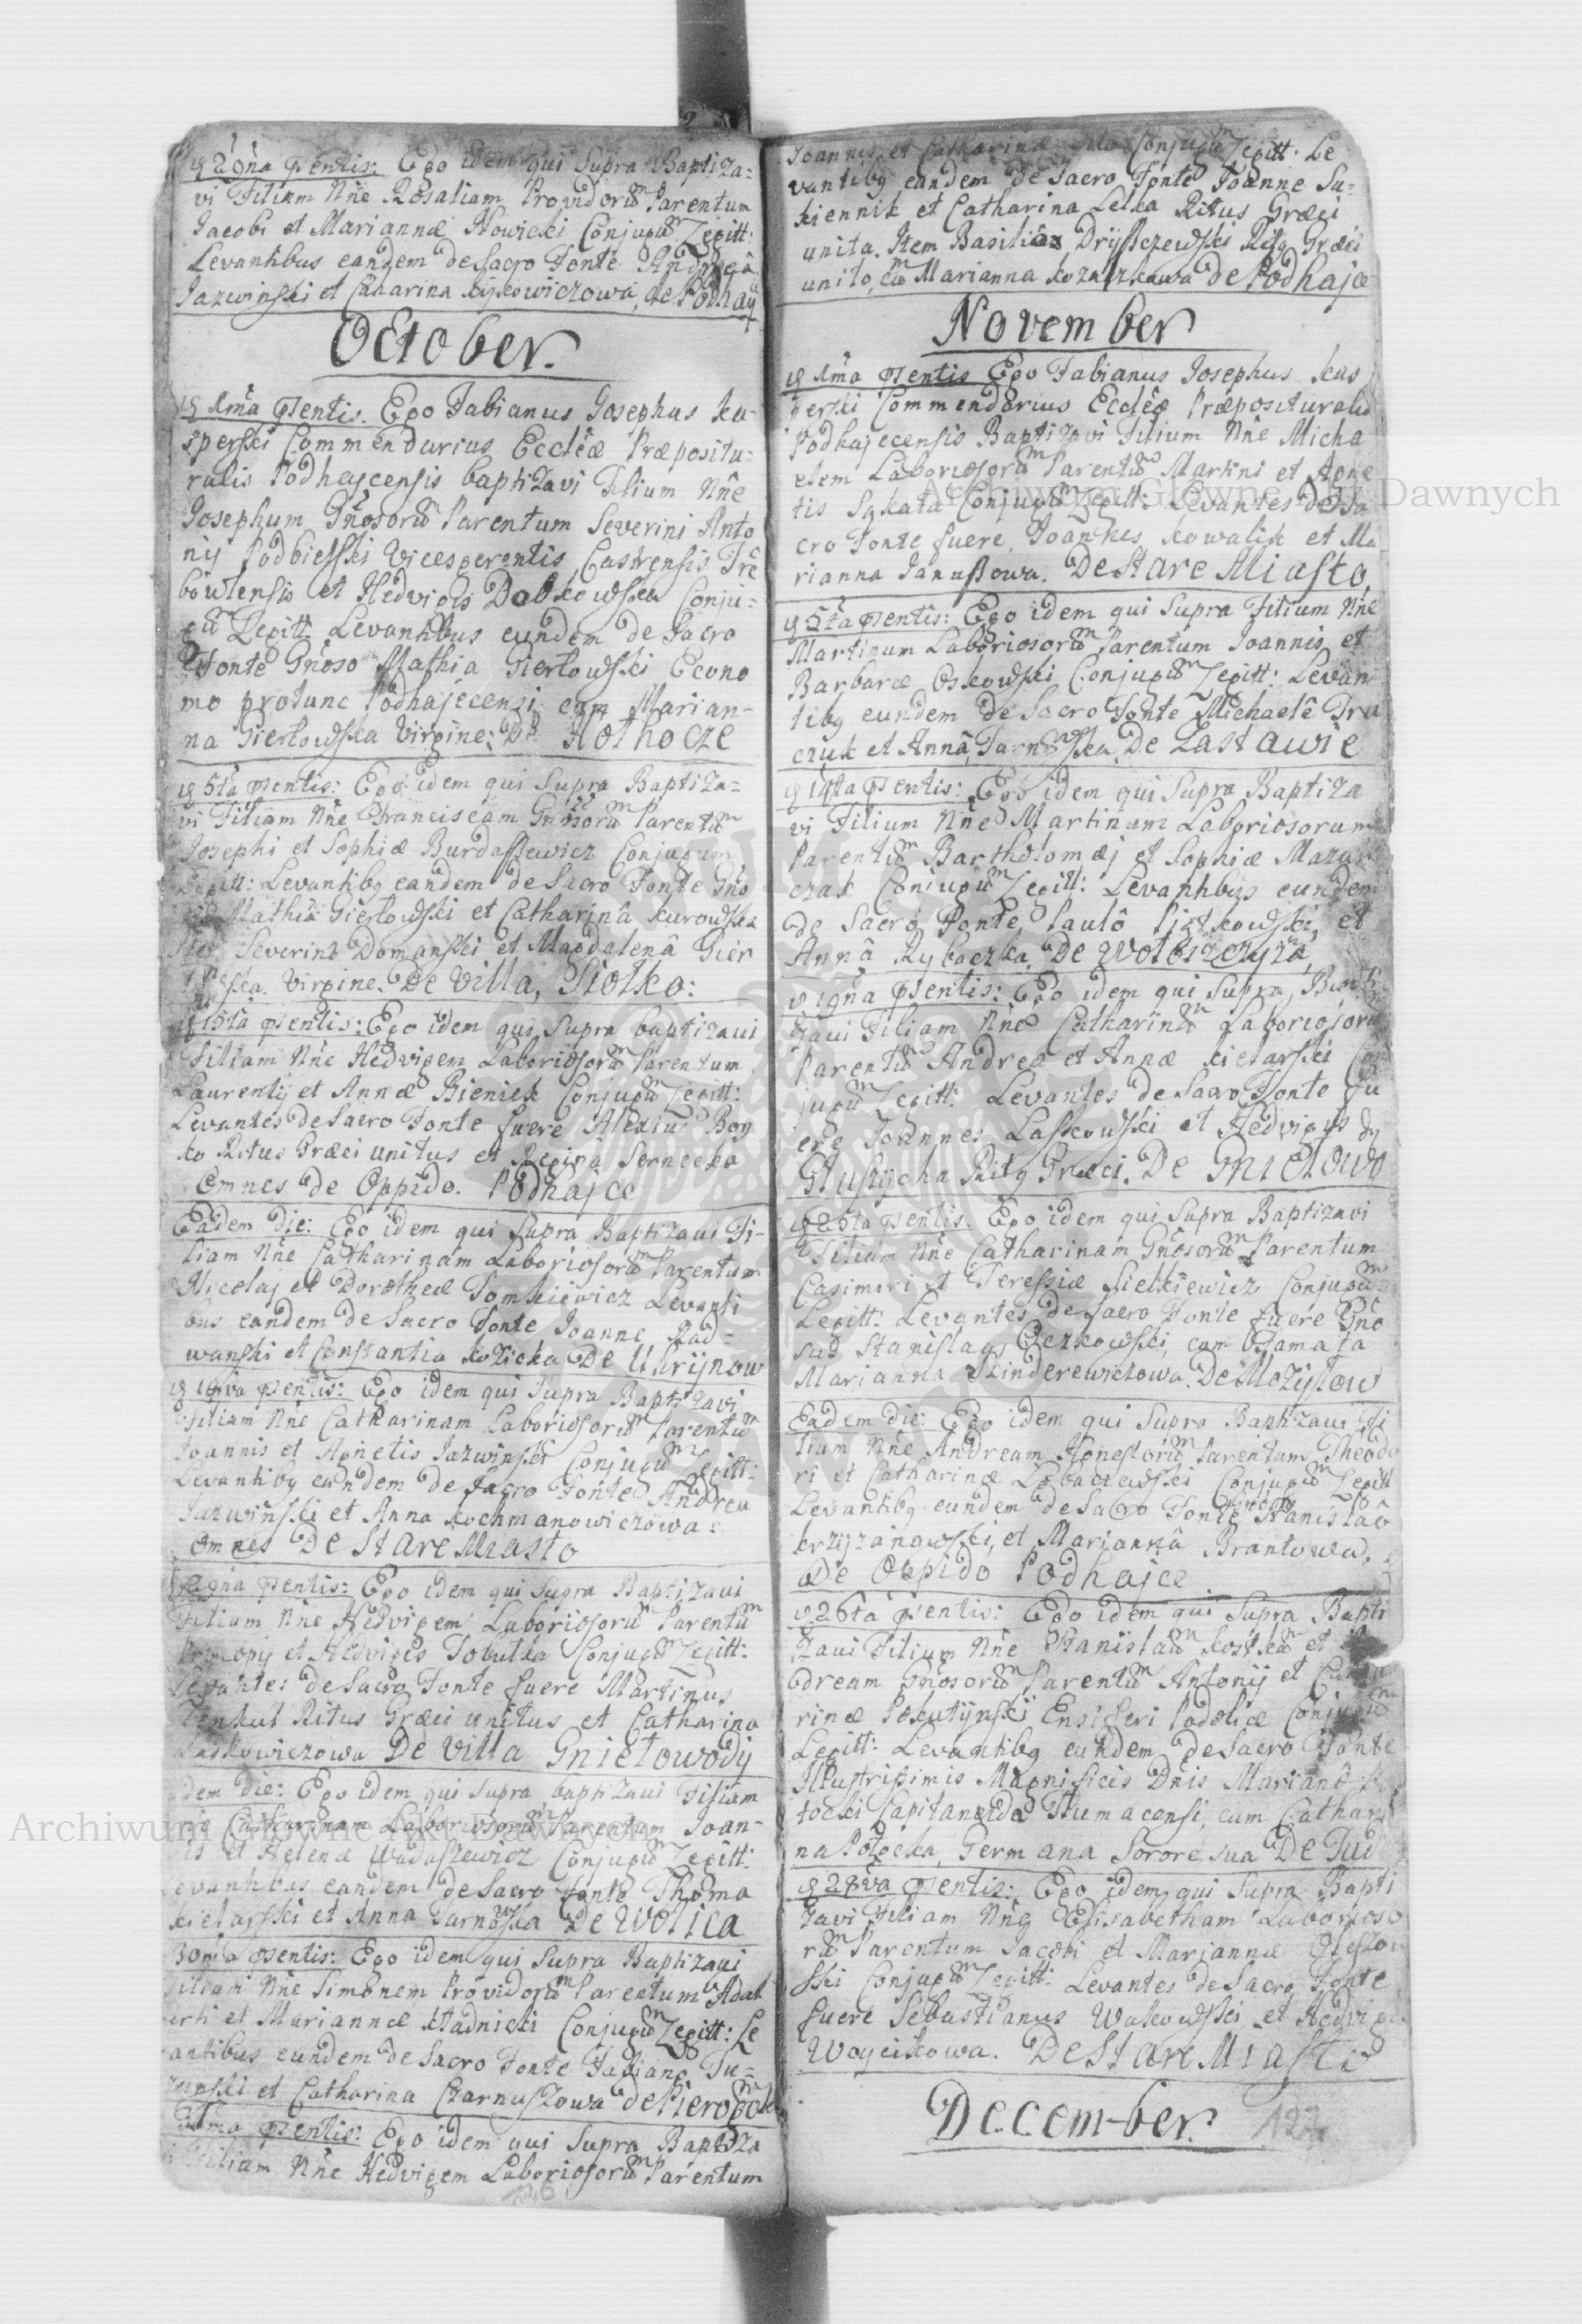 29na psentis: Ego idem qui Supra Baptiza=
vi Filiam Nñe Rosaliam Providorũm Parentum
Jacobi et Mariannæ Nowicki Conjugũm Legitt:
Levantibus eandem de Sacro Fonte Andreâ
Jazwinski et Catarina de Podhay
October.
1ma psentis. Ego Fabianus Josephus Ka-
sperski Commendarius Eccleæ Præpositu=
ralis Podhajecensis baptizavi Filium Nñe
Josephum Gñosorũ Parentum Severini Anto
nij Podbielski Vicesgerentis Castrensis Tre
bowlensis et Hedvigis Dobkowska Conju=
gũm Legitt. Levantibus eundem de Sacro
Fonte Gñoso Mathia Gierlowski Econo
mo protunc Podhajecensi cum Marian-
na Gierlowska Virgine. De Hothocze
5ta psentis: Ego idem qui Supra Baptiza=
vi Filiam Nñe Franciscam Gñosorũm Parentũm
Josephi et Sophiæ Burdassewicz Conjugum
Legitt: Levantibg eandem de Sacro Fonte Gño
Mathiâ Gierlowski et Catharinâ Kurowska
Severino Domanski et Magdalenâ Gier
Virgine. De Villa, Siolko:
15ta psentis: Ego idem qui Supra baptizavi
Filiam Nñe Hedvigem Laboriosorũm Parentum
Laurentij et Annæ Bieniek Conjugũm Legitt:
Levantes de Sacro Fonte fuere Alexius Boy
ko Ritus Græci unitus et Regina Sernecka
Omnes de Oppido. Podhajce
Eadem Die: Ego idem qui Supra Baptizavi Fi-
liam Nñe Catharinam Laboriosorũm Parentum
Nicolaj et Dorotheæ Tomkiewicz Levanti
bus eandem de Sacro Fonte Joanne Rad=
wanski et Constantia Kozicka De Uhrijnow
psentis: Ego idem qui Supra Baptizavi
Filiam Nñe Catharinam Laboriosorũm Parentũm
Joannis et Agnetis Jazwinski Conjugũm Legitt:
Levantibg eandem de Sacro Fonte Andrea
Jazwinski et Anna Kochmanowiczowa:
Omnes De Stare Miasto
29na psentis: Ego idem qui Supra Baptizavi
Filiam Nñe Hedvigem Laboriosorũm Parentũm
Procopij et Hedvigis Tobulka Conjugũm Legitt:
Levantes de Sacro Fonte fuere Martinus
Ritus Græci unitus et Catharina
Laskowiczowa De Villa Gnielowody
dem Die: Ego idem qui Supra baptizavi Filiam
Catharinam Laboriosorũm Parentum Joan-
is et Helenæ Wadaszewicz Conjugũm Legitt:
evantibus eandem de Sacro Fonte Thoma
Kielarski et Anna Tarnowska De Wolica
30ma psentis: Ego idem qui Supra Baptizavi
Filium Nñe Simonem Providorũm Parentum Adal
erti et Mariannæ Stadnicki Conjugũm Legitt: Le
antibus eundem de Sacro Fonte Fabiano Tu=
et Catharina Czarnuszowa de
psentis: Ego idem qui Supra Baptiza
Filiam Nñe Hedvigem Laboriosorũm Parentum
126
Joannis et Catharinæ Conjugũm Legitt. Le
vantibg eandem de Sacro Fonte Joanne Su=
kiennik et Catharina Lelka Ritus Græci
unita. Item Basilio Dryszczewski Ritg Græci
unito, cũm Marianna de Podhajce
November
1ma psentis Ego Fabianus Josephus Kas
perski Commendarius Eccleæ Præposituralis
Podhajecensis Baptizavi Filium Nñe Micha
elem Laboriosorũm Parentũm Martini et Agne
tis Conjugũm Legitt: Levantes de Sa
cro Fonte fuere, Joannes Kowalik et Ma
rianna Janussowa. De Stare Miasto,
5ta psentis: Ego idem qui Supra Filium Nñe
Martinum Laboriosorũm Parentum Joannis et
Barbaræ Oskowski Conjugũm Legitt: Levan
tibg eundem de Sacro Fonte Michaele Tra
czuk et Annâ Tarnowska De Zastawie
14ta psentis: Ego idem qui Supra Baptiza
vi Filium Nñe Martinum Laboriosorum
Parentũm Bartholomæj et Sophiæ Mazur
czak Conjugũm Legitt: Levantibus eundem
de Sacro Fonte, Paulô Piątkowski, et
Annâ Rybaczka, De Wołoszczyzna,
19na psentis: Ego idem qui Supra, Bapti
zavi Filiam Nñe Catharinãm Laboriosorũ
Parentũm Andreæ et Annæ Kielarski Con
jugũm Legitt: Levantes de Sacro Fonte fu
ere Joannes Laskowski et Hedvigis
Ritg Græci. De Gnielowo
25ta psentis. Ego idem qui Supra Baptizavi
Filiam Nñe Catharinam Gñosorũm Parentum
Casimiri et Teressiæ Sielkiewicz Conjugũm
Legitt: Levantes de Sacro Fonte fuere Gño
sus Stanislaus Czerkowski, cum Famata
Marianna Skinderewiczowa. De Mozyłow
Eadem Die: Ego idem qui Supra Baptizavi Fi
lium Nñe Andream Honestorũm Parentum Theodo
ri et Catharinæ Lobaczewski Conjugũm Legitt
Levantibg eundem de Sacro Fonte Stanislaô
Krzyżanowski, et Mariannâ Brantowa,
De Oppido Podhajce
26ta psentis: Ego idem qui Supra Bapti
zavi Filium Nñe Stanislaũm Kostkam et
dream Gñosorũm Parentũm Antonij et Catha
rinæ Pokutyński Ensiferi Podoliæ Conjugũm
Legitt: Levantibg eundem de Sacro Fonte
Illustrissimis Magnificis Dnis Marianô
tocki Capitaneide Tlumacensi, cum Cathari
na Potocka, Germana Sorore sua De
28va psentis: Ego idem qui Supra Bapti
zavi Filiam Nñe Elisabetham Laborioso
rũm Parentum Jacobi et Mariannæ
ski Conjugũm Legitt: Levantes de Sacro Fonte
fuere Sebastianus Walkowski et Hedvigis
Woycikowa. De Stare Miasto
December.
127
Archiwum Główne Akt Dawnych
Archiwum Główne Akt Dawnych